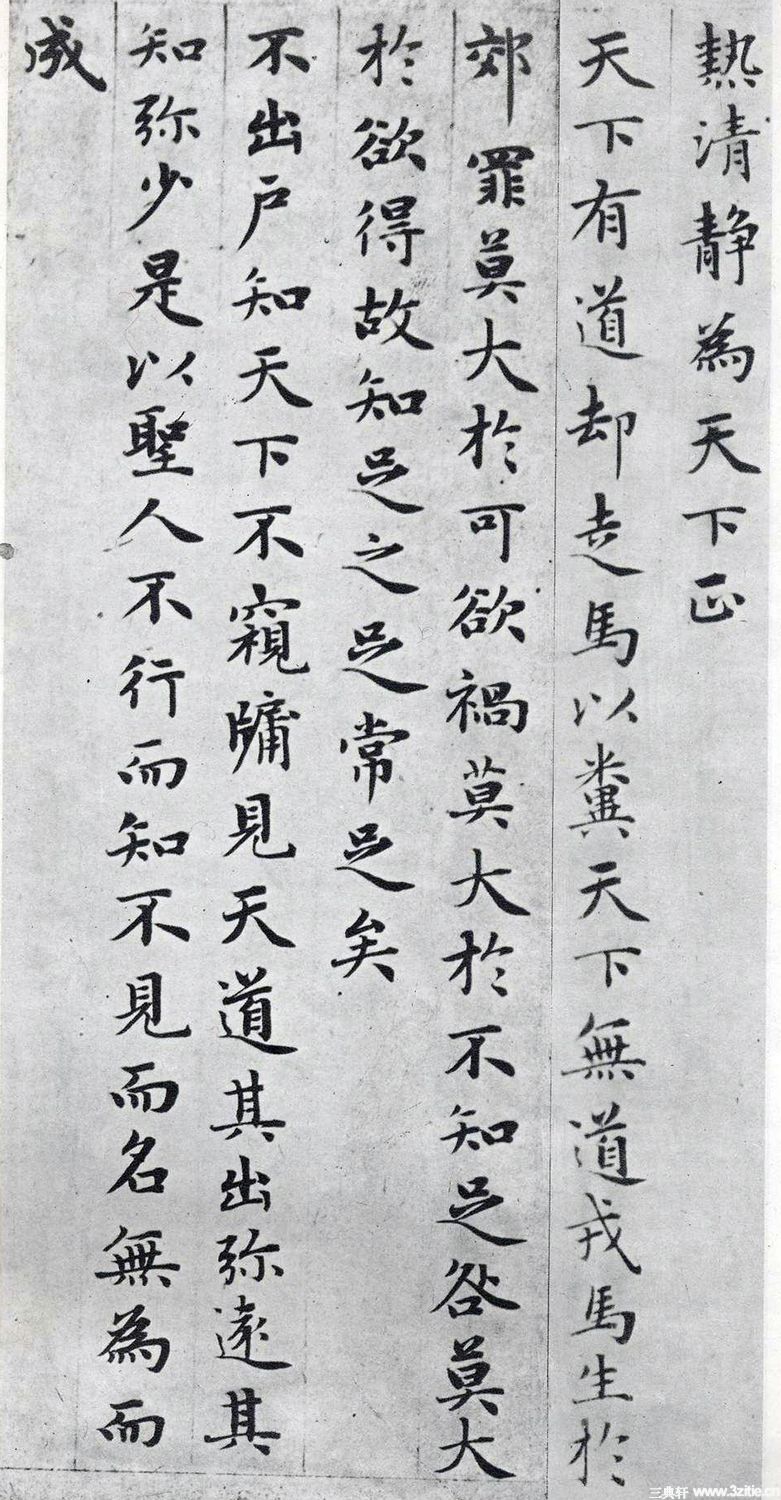 熱清静為天下正
天下有道却走馬以糞天下無道戎馬生於
郊罪莫大於可欲禍莫大於不知足咎莫大
於欲得故知足之足常足矣
不出戶知天下不窺牖見天道其出弥遠其
知弥少是以聖人不行而知不見而名無為而
成
三典轩 www.3zitie.cn